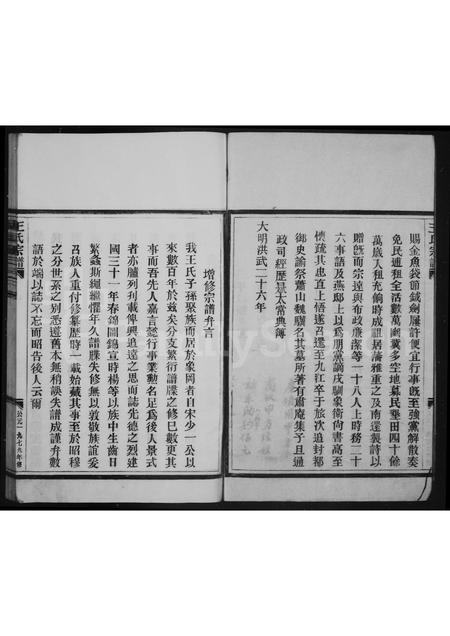 賜金魚袋節鉞劍履許便宜行事旣至強黨解散奏
免民逋租全活數萬剛冀多空地募民墾田四十餘
萬歲入租充餉時成龍居藩雅重之及南還製詩以
贈旣而宗遠與布政廉潔等一十八人上時務二十
六事語及燕邸上以為朋黨謫戍關象衛尚書高至
懷疏其忠直上悟遂召還至九江卒于旅次追封都
御史諭祭蕭山魏驥名其墓所著有肅庵集子且通
政司經歷昱太常典簿
大明洪武二十六年
王氏宗譜
增修宗譜弁言
我王氏子孫聚族而居於象岡者自宋少一公以
來數百年於茲矣分支繁衍譜牒之修已數更其
事而吾先人嘉言懿行事業勳名足為後人景式
者亦臚列刋載俾興追遠之思而誌先德之烈建
國三十一年春錦圖錫宣時楊等以族中生齒日
繁螽斯繩繼懼年久譜牒失修無以敦敬族誼爰
召族人重付修纂歷時一載始藏其事至於昭穆
之分世系之別悉遵舊本無稍謨失譜成謹弁數
語於端以誌不忘而昭告後人云爾
公元一九七九年修